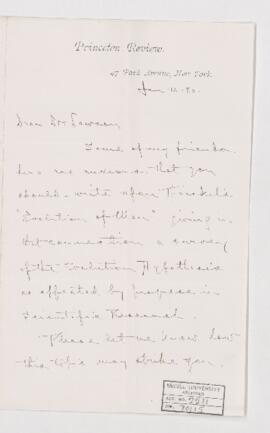 Princeton Review.
47 Park Avenue, New York.
Jan 12. 80.
Dear Dr Dawson
Some of my friends
have me
that you
should write upon Haeckel's
"Evolution of Man" giving in
that connection a survey
of the Evolution Hypothesis
as affected by progress in
Scientific Research.
Please let me know how
this topic may strike you.
McGILL UNIVERSITY
ARCHIVES
ACC. NO. 2211
REF.